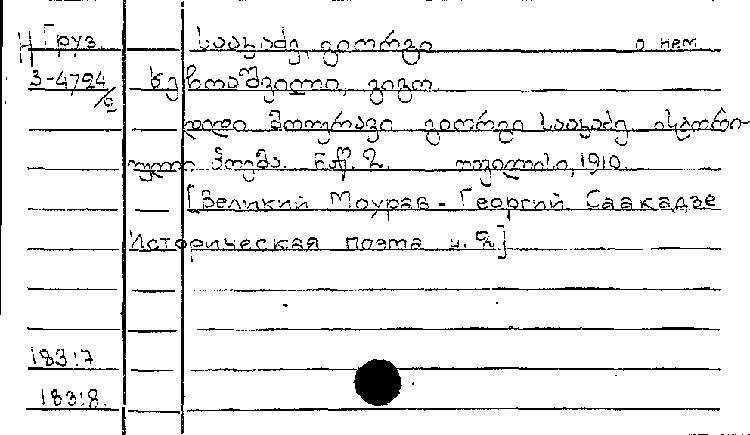 Н Груз. სააკაძე, გიორგი о нем
3-4794/2 ხეჩოაშვილი, გიგო
დიდი მოურავი გიორგი სააკაძე ისტორი-
ული პოემა. ნაწ. 2. თფილისი, 1910.
[Великий Моурав - Георгий Саакадзе
Историческая поэма ч. 2]
18317
18318.